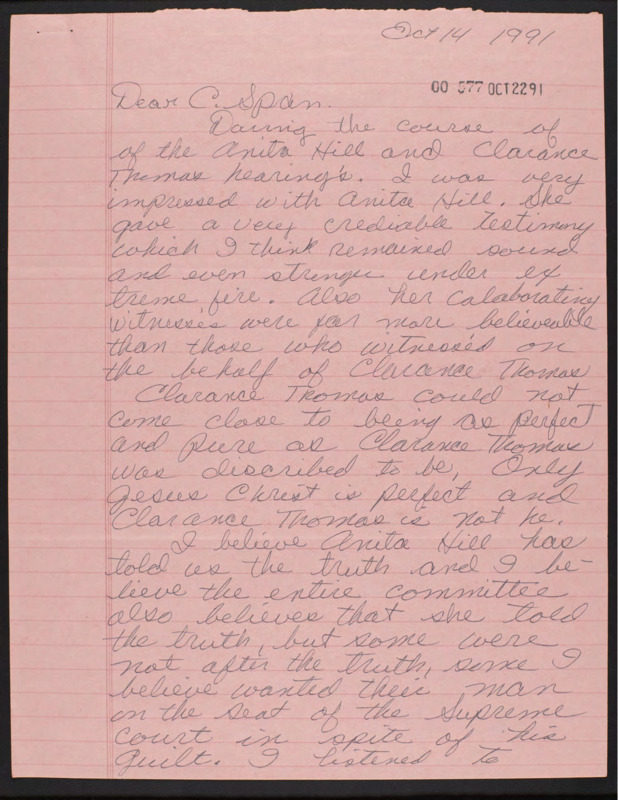 Oct 14 1991
00 577 OCT2291
Dear C. Span.
During the course of
of the Anita Hill and Clarance
Thomas hearing's. I was very
impressed with Anita Hill. She
gave a very crediable testimony
which I think remained sound
and even stronger under ex
treme fire. Also her calaborating
witnesses were far more believeable
than those who witnessed on
the behalf of Clarance Thomas
Clarance Thomas could not
come close to being as perfect
and pure as Clarance Thomas
was discribed to be, Only
Jesus Christ is perfect and
Clarance Thomas is not he.
I believe Anita Hill has
told us the truth and I be-
lieve the entire committee
also believes that she told
the truth, but some were
not after the truth, some I
believe wanted their man
on the seat of the Supreme
Court in spite of his
Guilt. I listened to